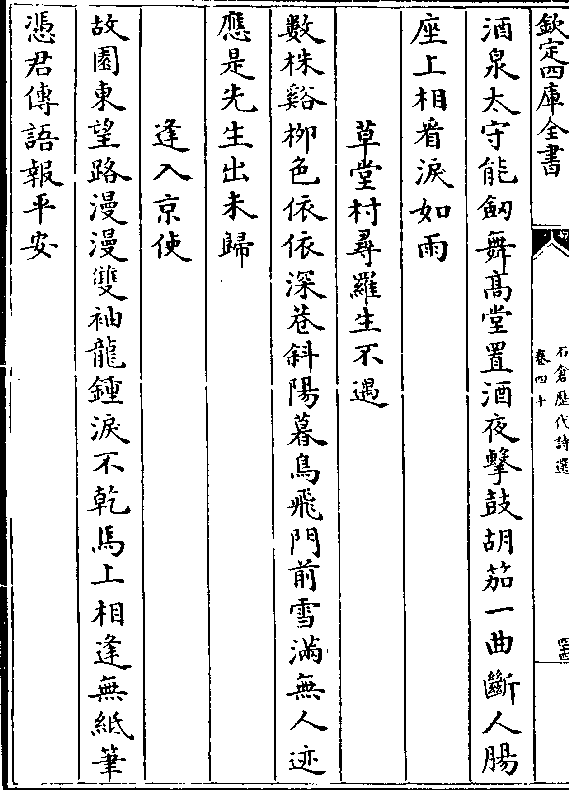 欽定四庫全書
石倉歷代詩選
卷四十
酒泉太守能劒舞髙堂置酒夜擊鼓胡笳一曲斷人腸
座上相看淚如雨
草堂村尋羅生不遇
數株谿栁色依依深巷斜陽暮鳥飛門前雪滿無人迹
應是先生出未歸
逢入京使
故園東望路漫漫雙袖龍鍾淚不乾馬上相逢無紙筆
憑君傳語報平安